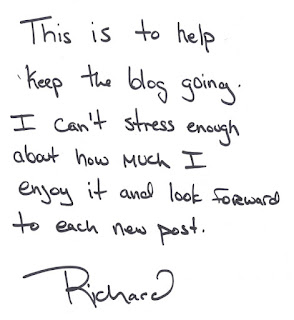 This is to help
keep the blog going.
I can't stress enough
about how much I
enjoy it and look forward
to each new post.
Richard